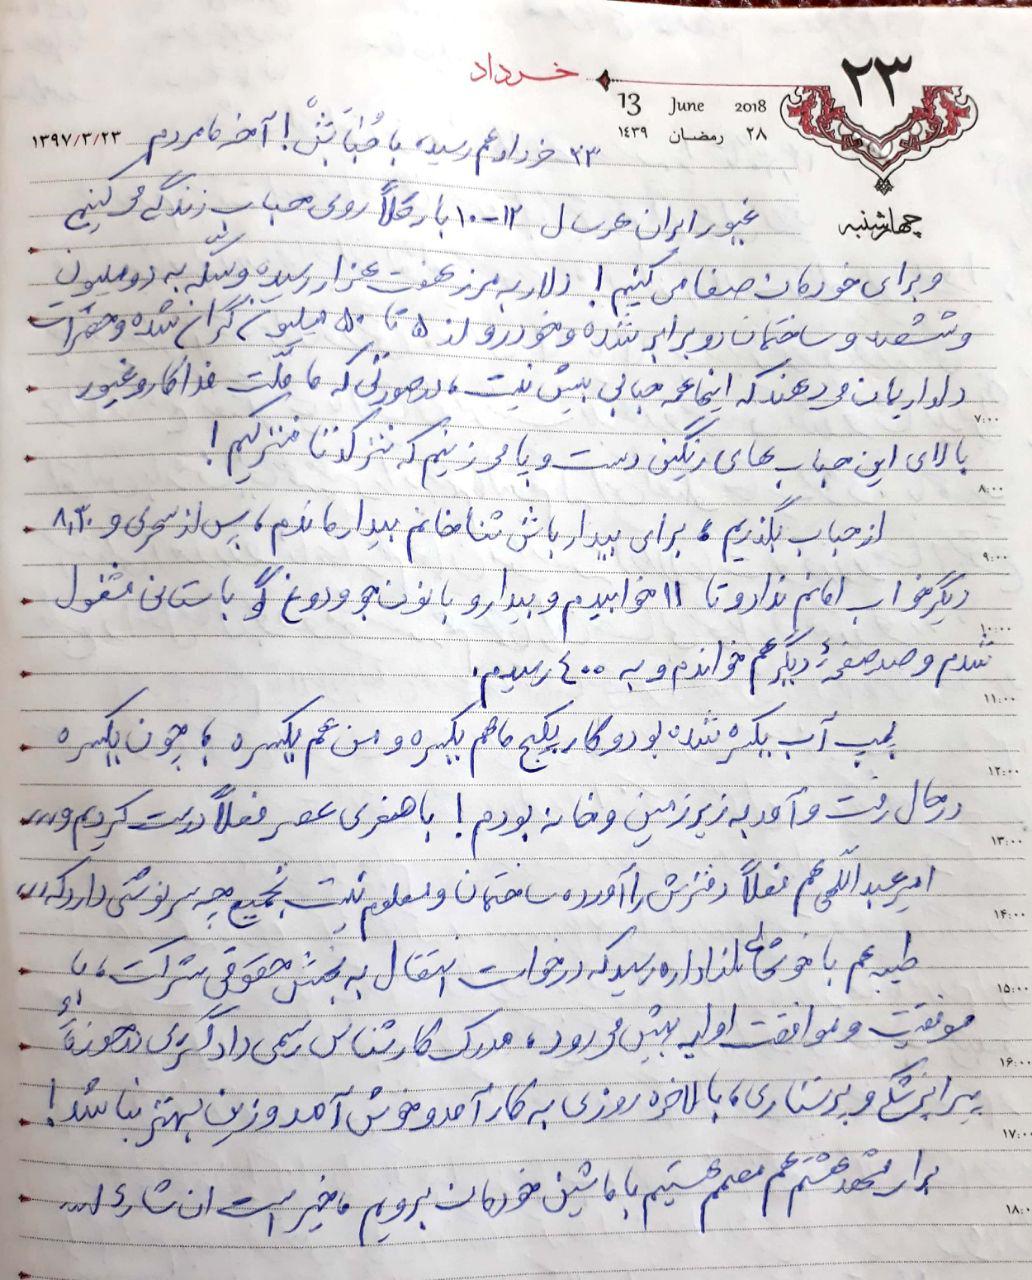 ۲۳
خرداد
13 June 2018
۲۸ رمضان ۱۴۳۹
۱۳۹۷/۳/۲۳
چهارشنبه
۲۳ خرداد هم رسید، با حُبابَش! آخر ما مردم
غیور ایران هر سال ۱۲-۱۰ بار کلاً روی حباب زندگی می کنیم
و برای خودمان صفا می کنیم! دلار به مرز هفت هزار رسیده و سکّه به دو میلیون
و ششصد و ساختمان دو برابر شده و خودرو از ۵ تا ۵۰ میلیون گران شده و حضرات
دلداریمان می دهند که اینها همه حبابی بیش نیست، در صورتی که ما ملّت فداکار و غیور
بالای این حباب های رنگین دست و پا می زنیم که نترکد تا نترکیم!
از حباب بگذریم، برای بیدار باش ثنا خانم بیدار ماندم، پس از سحری و ۸،۳۰
دیگر خواب امانم نداد و تا ۱۱ خوابیدم و بیدار و با نون جو و دوغ گو باستانی مشغول
شدم و صد صفحهٔ دیگر هم خواندم و به ۴۰۰ رسیدم.
پمپ آب یکسره شده بود و کار پکیج ما هم یکسره و من هم یکسره، چون یکسره
در حال رفت و آمد به زیرزمین و خانه بودم! با صفری عصر فعلاً درست کردیم و...
امیر عبداللّهی هم فعلاً دفترش را آورده ساختمان و معلوم نیست تجمیع چه سرنوشتی دارد که...
طیبه هم با خوشحالی از اداره رسید که درخواست انتقال به بخش حقوقی شرکت، با
موفقیت و موافقت اولیه پیش می رود، مدرک کارشناس رسمی دادگستری در حوزهٔ
پیراپزشکی و پرستاری، بالاخره روزی به کار آمد و خوش آمد و زین بهتر نباشد!
برای مشهد هشتم هم مصمم هستیم با ماشین خودمان برویم، خیر است ان شاء ا...
۷:۰۰
۸:۰۰
۹:۰۰
۱۰:۰۰
۱۱:۰۰
۱۲:۰۰
۱۳:۰۰
۱۴:۰۰
۱۵:۰۰
۱۶:۰۰
۱۷:۰۰
۱۸:۰۰